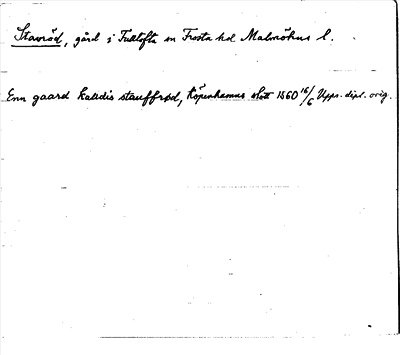 Stavröd, gård i Fulltofta sn Frosta hd Malmöhus l.
Enn gaard kaldis stauffrød, Köpenhamns slott 1560 16/6 Upps. dipl. orig.